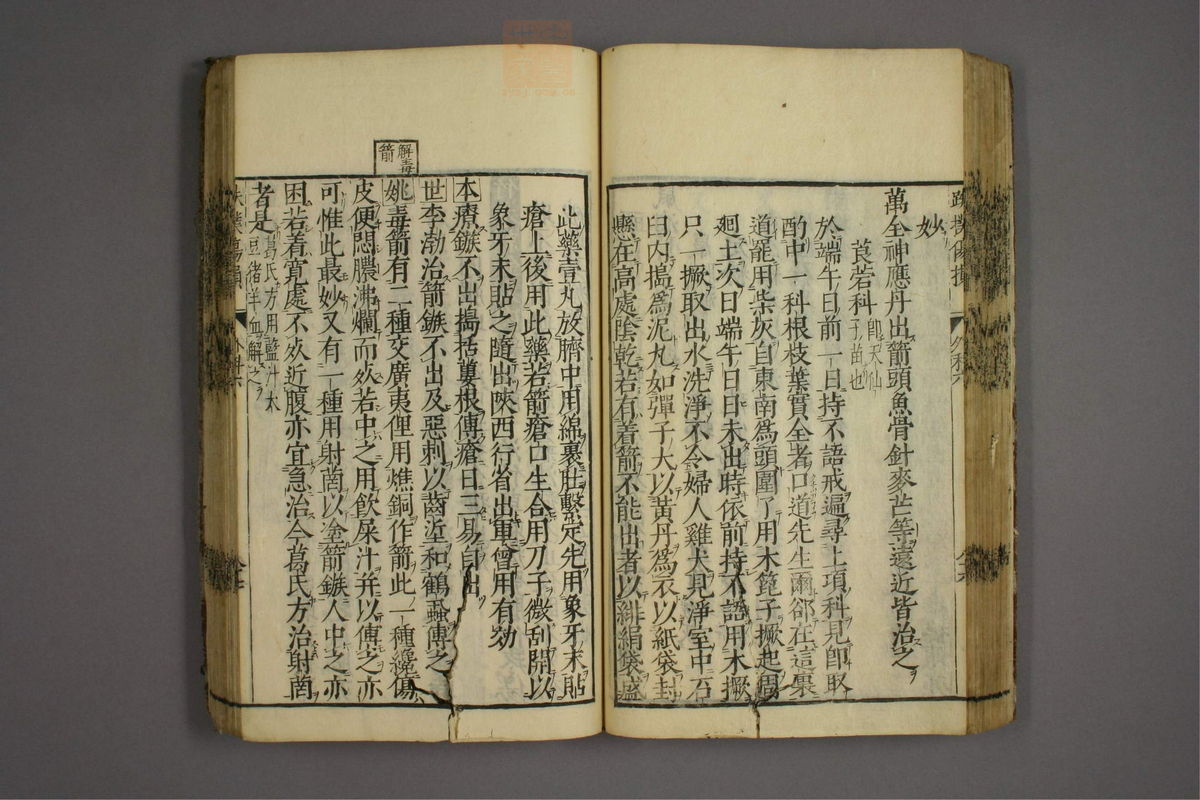 萬全神應丹出箭頭魚骨針麥芒等遠近皆治之
妙
莨菪科 即天仙
子苗也
於端午日前一日持不語戒遍尋上項科見即取
酌中一科根枝葉實全者口道先生爾卻在這裏
道罷用柴灰自東南為頭圍了用木篦子撅起周
廻土次日端午日日未出時依前持不語用木撅
只一撅取出水洗淨不令婦人雞犬見淨室中石
臼内搗為泥丸如彈子大以黄丹為衣以紙袋封
懸在高處陰乾若有着箭不能出者以緋絹袋盛
此藥壹丸放臍中用綿裹肚繫定先用象牙末貼
瘡上後用此藥若箭瘡口生合用刀子微刮開以
象牙末貼之隨出陝西行省出軍曾用有効
本療鏃不出搗栝蔞根傅瘡日三易自出
世李渤治箭鏃不出及惡刺以齒垽和鶴蝨傅之
解毒
箭
姚毒箭有二種交廣夷俚用燋銅作箭此一種纔傷
皮便悶膿沸爛而死若中之用飲屎汁并以傅之亦
可惟此最妙又有一種用射䓇以塗箭鏃人中之亦
困若着寛處不死近腹亦宜急治今葛氏方治射䓇
者是 葛氏方用藍汁大
豆猪羊血解之